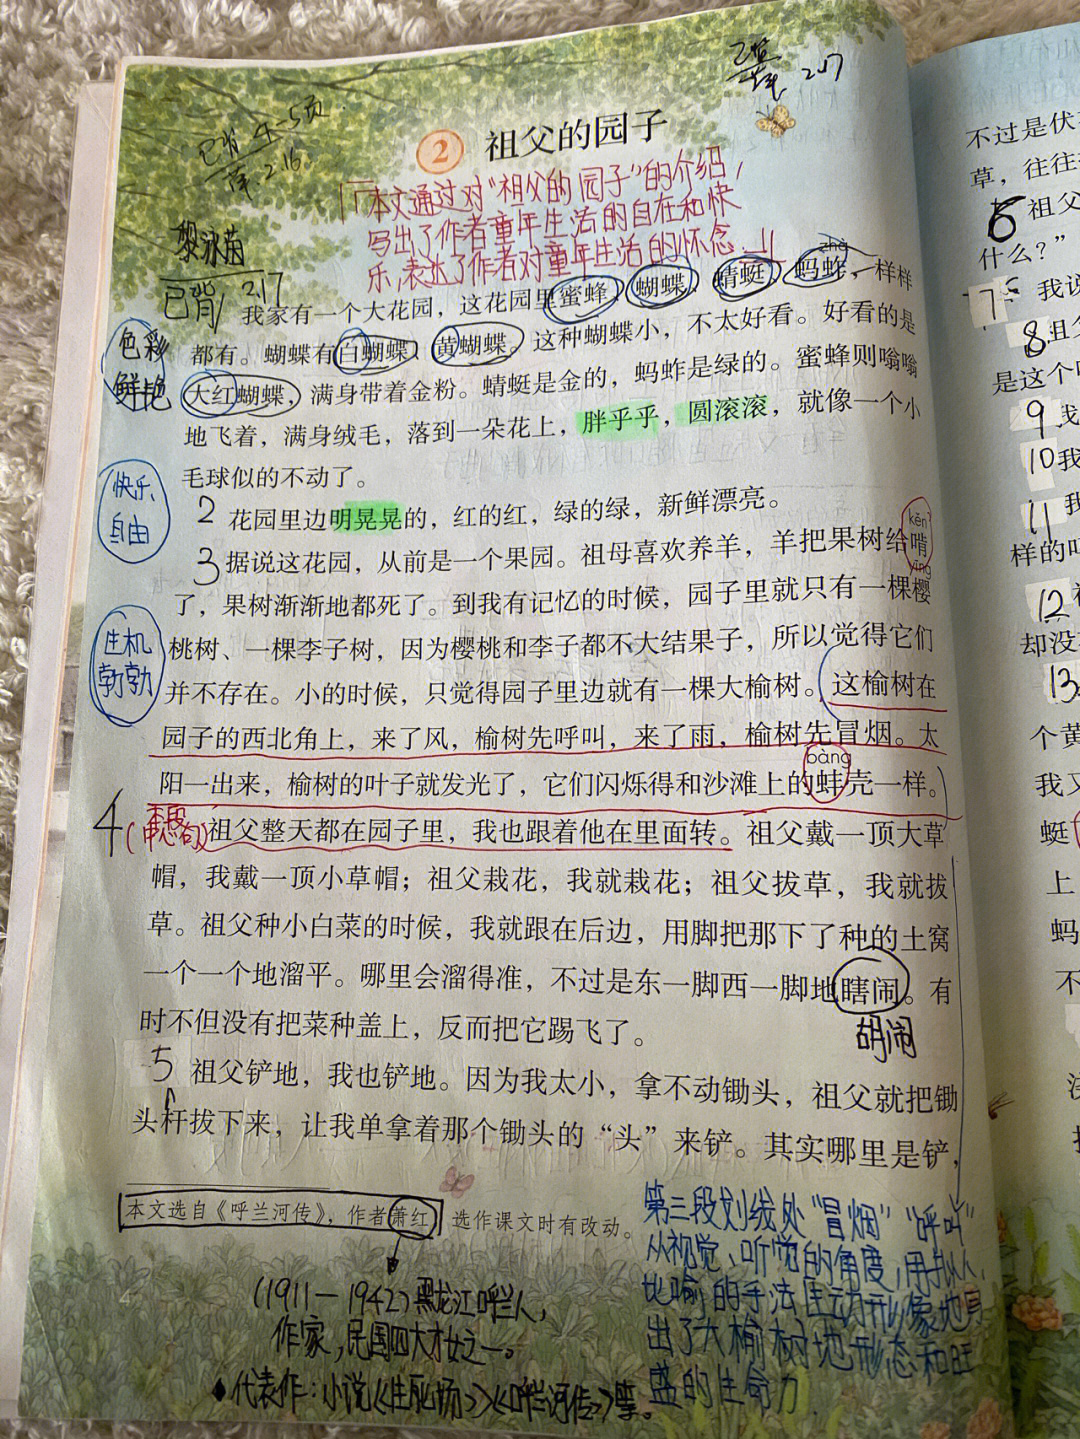 已背 4-5页
2.16.
2.17
2 祖父的园子
本文通过对“祖父的园子”的介绍,
写出了作者童年生活的自在和快
乐,表达了作者对童年生活的怀念.
已背 2.17
zhà
我家有一个大花园，这花园里蜜蜂、蝴蝶、蜻蜓、蚂蚱，样样
都有。蝴蝶有白蝴蝶、黄蝴蝶。这种蝴蝶小，不太好看。好看的是
大红蝴蝶，满身带着金粉。蜻蜓是金的，蚂蚱是绿的。蜜蜂则嗡嗡
地飞着，满身绒毛，落到一朵花上，胖乎乎，圆滚滚，就像一个小
毛球似的不动了。
色彩
鲜艳
快乐
自由
2 花园里边明晃晃的，红的红，绿的绿，新鲜漂亮。
kěn
3 据说这花园，从前是一个果园。祖母喜欢养羊，羊把果树给啃
yīng
了，果树渐渐地都死了。到我有记忆的时候，园子里就只有一棵樱
桃树、一棵李子树，因为樱桃和李子都不大结果子，所以觉得它们
并不存在。小的时候，只觉得园子里边就有一棵大榆树。这榆树在
园子的西北角上，来了风，榆树先呼叫，来了雨，榆树先冒烟。太
bàng
阳一出来，榆树的叶子就发光了，它们闪烁得和沙滩上的蚌壳一样。
生机
勃勃
4 祖父整天都在园子里，我也跟着他在里面转。祖父戴一顶大草
帽，我戴一顶小草帽；祖父栽花，我就栽花；祖父拔草，我就拔
草。祖父种小白菜的时候，我就跟在后边，用脚把那下了种的土窝
一个一个地溜平。哪里会溜得准，不过是东一脚西一脚地瞎闹。有
时不但没有把菜种盖上，反而把它踢飞了。
胡闹
5 祖父铲地，我也铲地。因为我太小，拿不动锄头，祖父就把锄
头杆拔下来，让我单拿着那个锄头的“头”来铲。其实哪里是铲，
本文选自《呼兰河传》，作者萧红，选作课文时有改动。
(1911—1942)黑龙江呼兰人,
作家,民国四大才女之一。
◆代表作:小说《生死场》《呼兰河传》等。
第三段划线处“冒烟”“呼叫”
从视觉、听觉的角度,用拟人、
比喻的手法生动形象地写
出了大榆树地形态和旺
盛的生命力
不过是伏
草，往往
6 祖父
什么？”
7 我说
8 祖父
是这个
9 我
10 我
11 我
样的
12
却没
13
个黄
我又
蜓
上
蚂
不